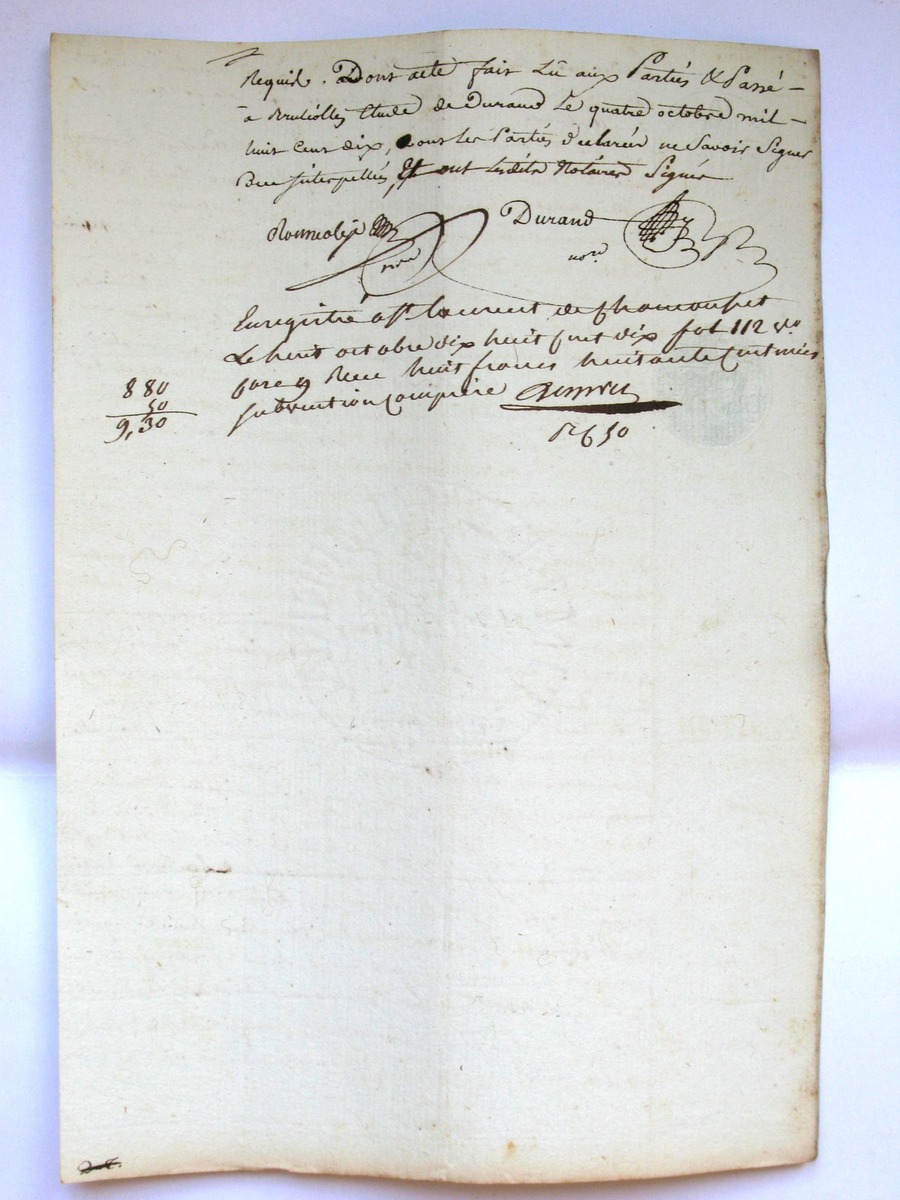 Requis. Dont acte fait Lû aux Parties & Passé
à Bruliolles Etude de Durand Le quatre octobre mil
huit cent dix, Les Parties déclaré ne Savoir Signer
Interpellés, Et ont Lesdits Notaires Signé
Durand
nore.
Enregistré à St. laurent de Chamousset
Le huit octobre dix huit cent dix fol 112 vo.
Reçu huit francs huitante centimes
Subvention comprise
8 80
50
9,30
6 50